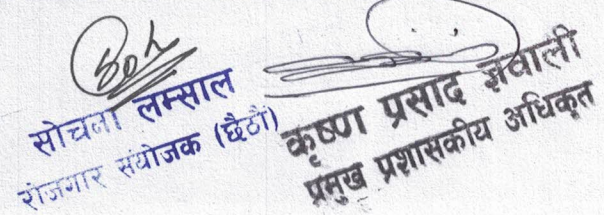 सोचना लम्साल
रोजगार संयोजक (छैठौं)
कृष्ण प्रसाद ज्ञवाली
प्रमुख प्रशासकीय अधिकृत